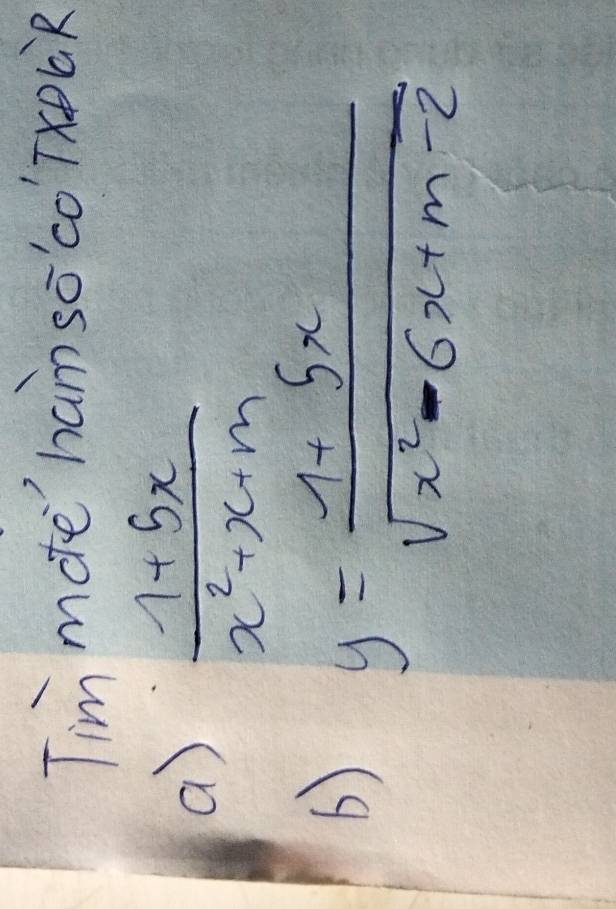 Tìm m để hàm số có TXĐ là R
a) \frac{1+5x}{x^2+x+m}
b) y = \frac{1+5x}{\sqrt{x^2-6x+m-2}}